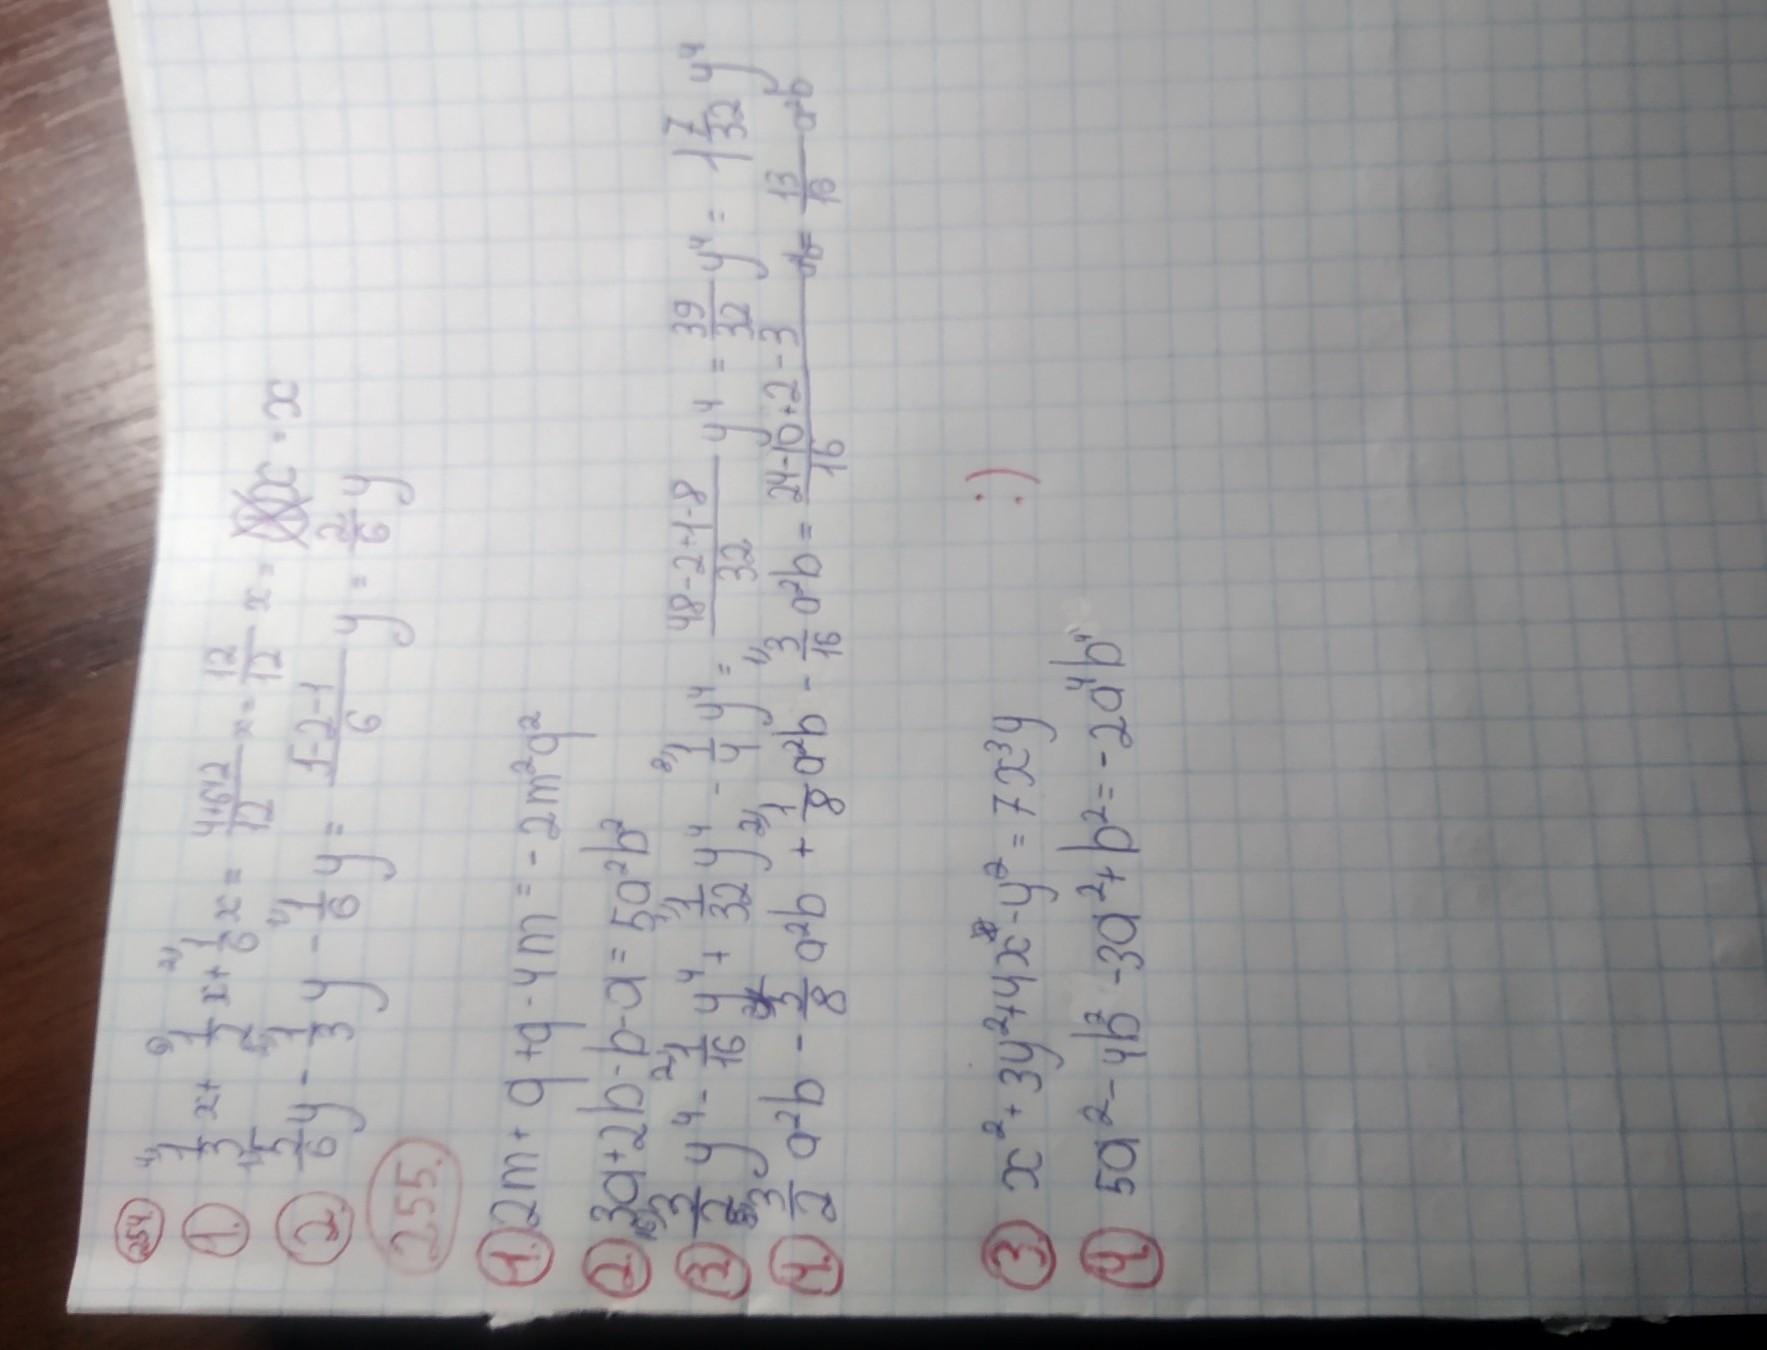 254.
1. 4) 1/3 x + 6) 1/2 x + 2) 1/6 x = 4+6+2/12 x = 12/12 x = x = x
2. 5/6 y - 2) 1/3 y - 1) 1/6 y = 5-2-1/6 y = 2/6 y
255.
1. 2m + q + q - 4m = -2m²q²
2. 3a + 2b - b - a = 5a²b²
3. 16) 3/2 y⁴ - 2) 1/16 y⁴ + 1) 1/32 y⁴ - 8) 1/4 y⁴ = 48-2+1-8/32 y⁴ = 39/32 y⁴ = 1 7/32 y⁴
4. 8) 3/2 a²b - 2) 5/8 a²b + 2) 1/8 a²b - 1) 3/16 a²b = 24-10+2-3/16 = 13/16 a²b
3. x² + 3y² + 4x - y² = 7x³y
4. 5a² - 4b² - 3a² + b² = -2a⁴b⁴
:)